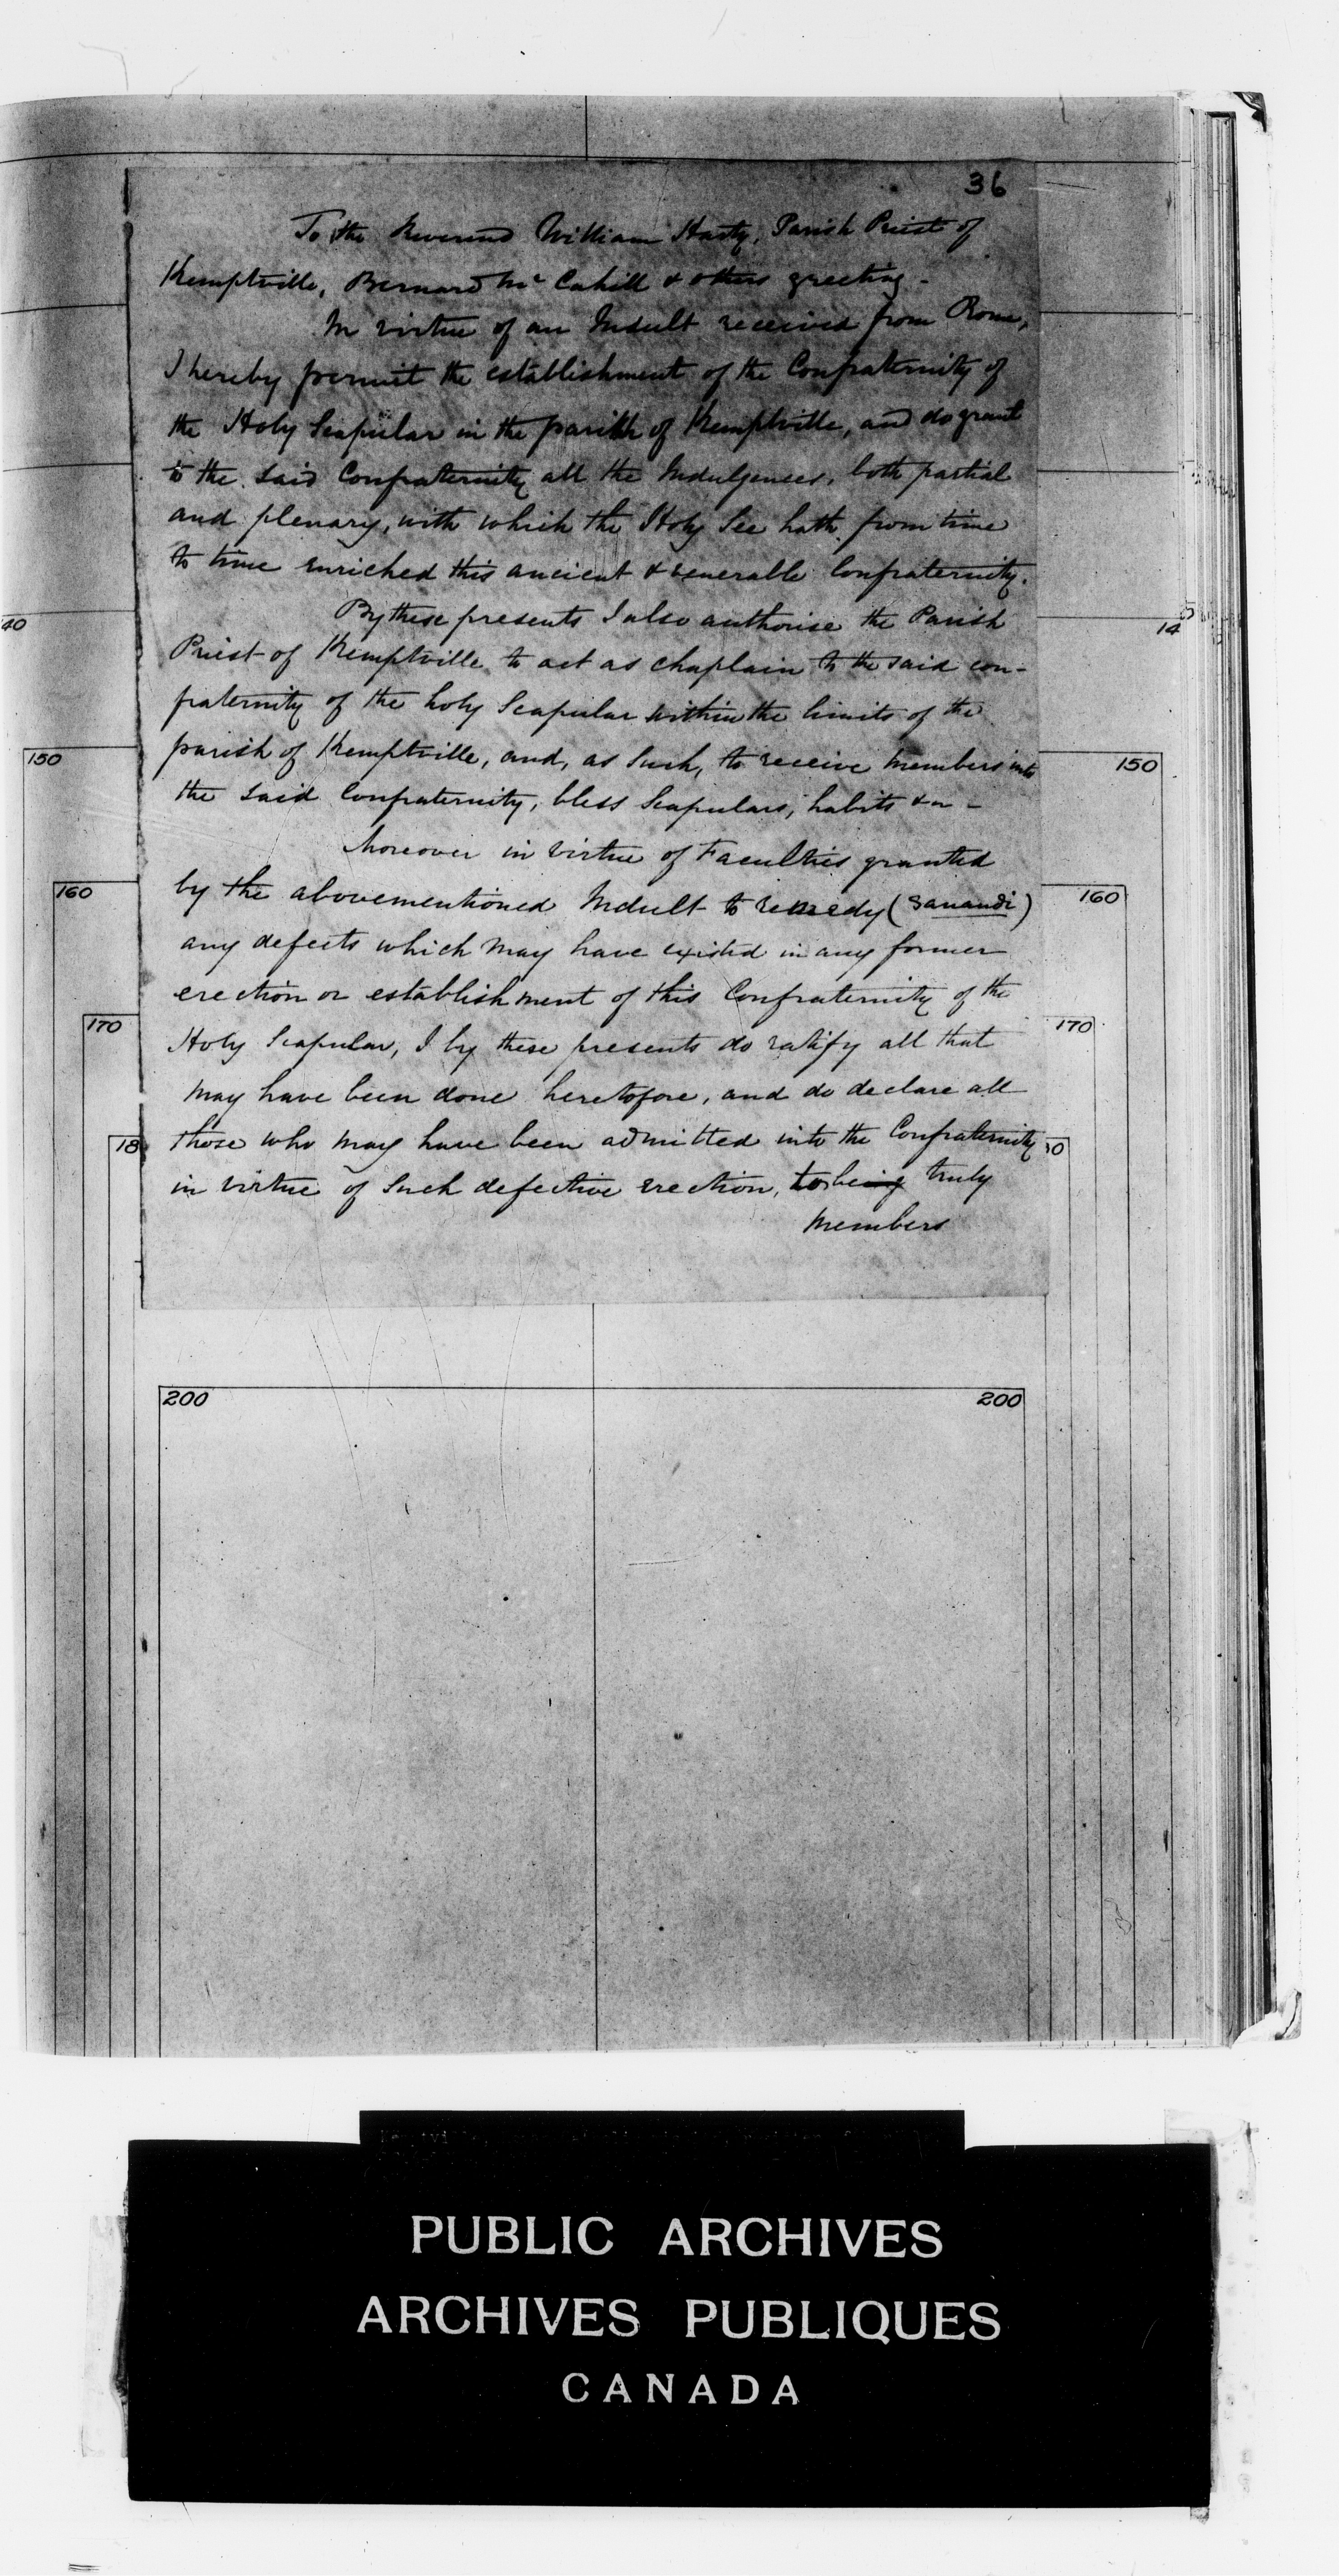 36
To the Reverend William Harty, Parish Priest of
Kemptville, Bernard Mc Cahill & others greeting -
In virtue of an Indult received from Rome,
I hereby permit the establishment of the Confraternity of
the Holy Scapular in the parish of Kemptville, and do grant
to the said Confraternity all the Indulgences, both partial
and plenary, with which the Holy See hath from time
to time enriched this ancient & venerable Confraternity.
By these presents I also authorise the Parish
Priest of Kemptville to act as chaplain to the said con-
fraternity of the holy Scapular within the limits of the
parish of Kemptville, and, as such, to receive members into
the said Confraternity, bless Scapulars, habits &c -
Moreover in virtue of Faculties granted
by the abovementioned Indult to remedy (sanandi)
any defects which may have existed in any former
erection or establishment of this Confraternity of the
Holy Scapular, I by these presents do ratify all that
may have been done heretofore, and do declare all
those who may have been admitted into the Confraternity
in virtue of such defective erection, to being truly
members
40
14
150
150
160
160
170
170
18
0
200
200
PUBLIC ARCHIVES
ARCHIVES PUBLIQUES
CANADA